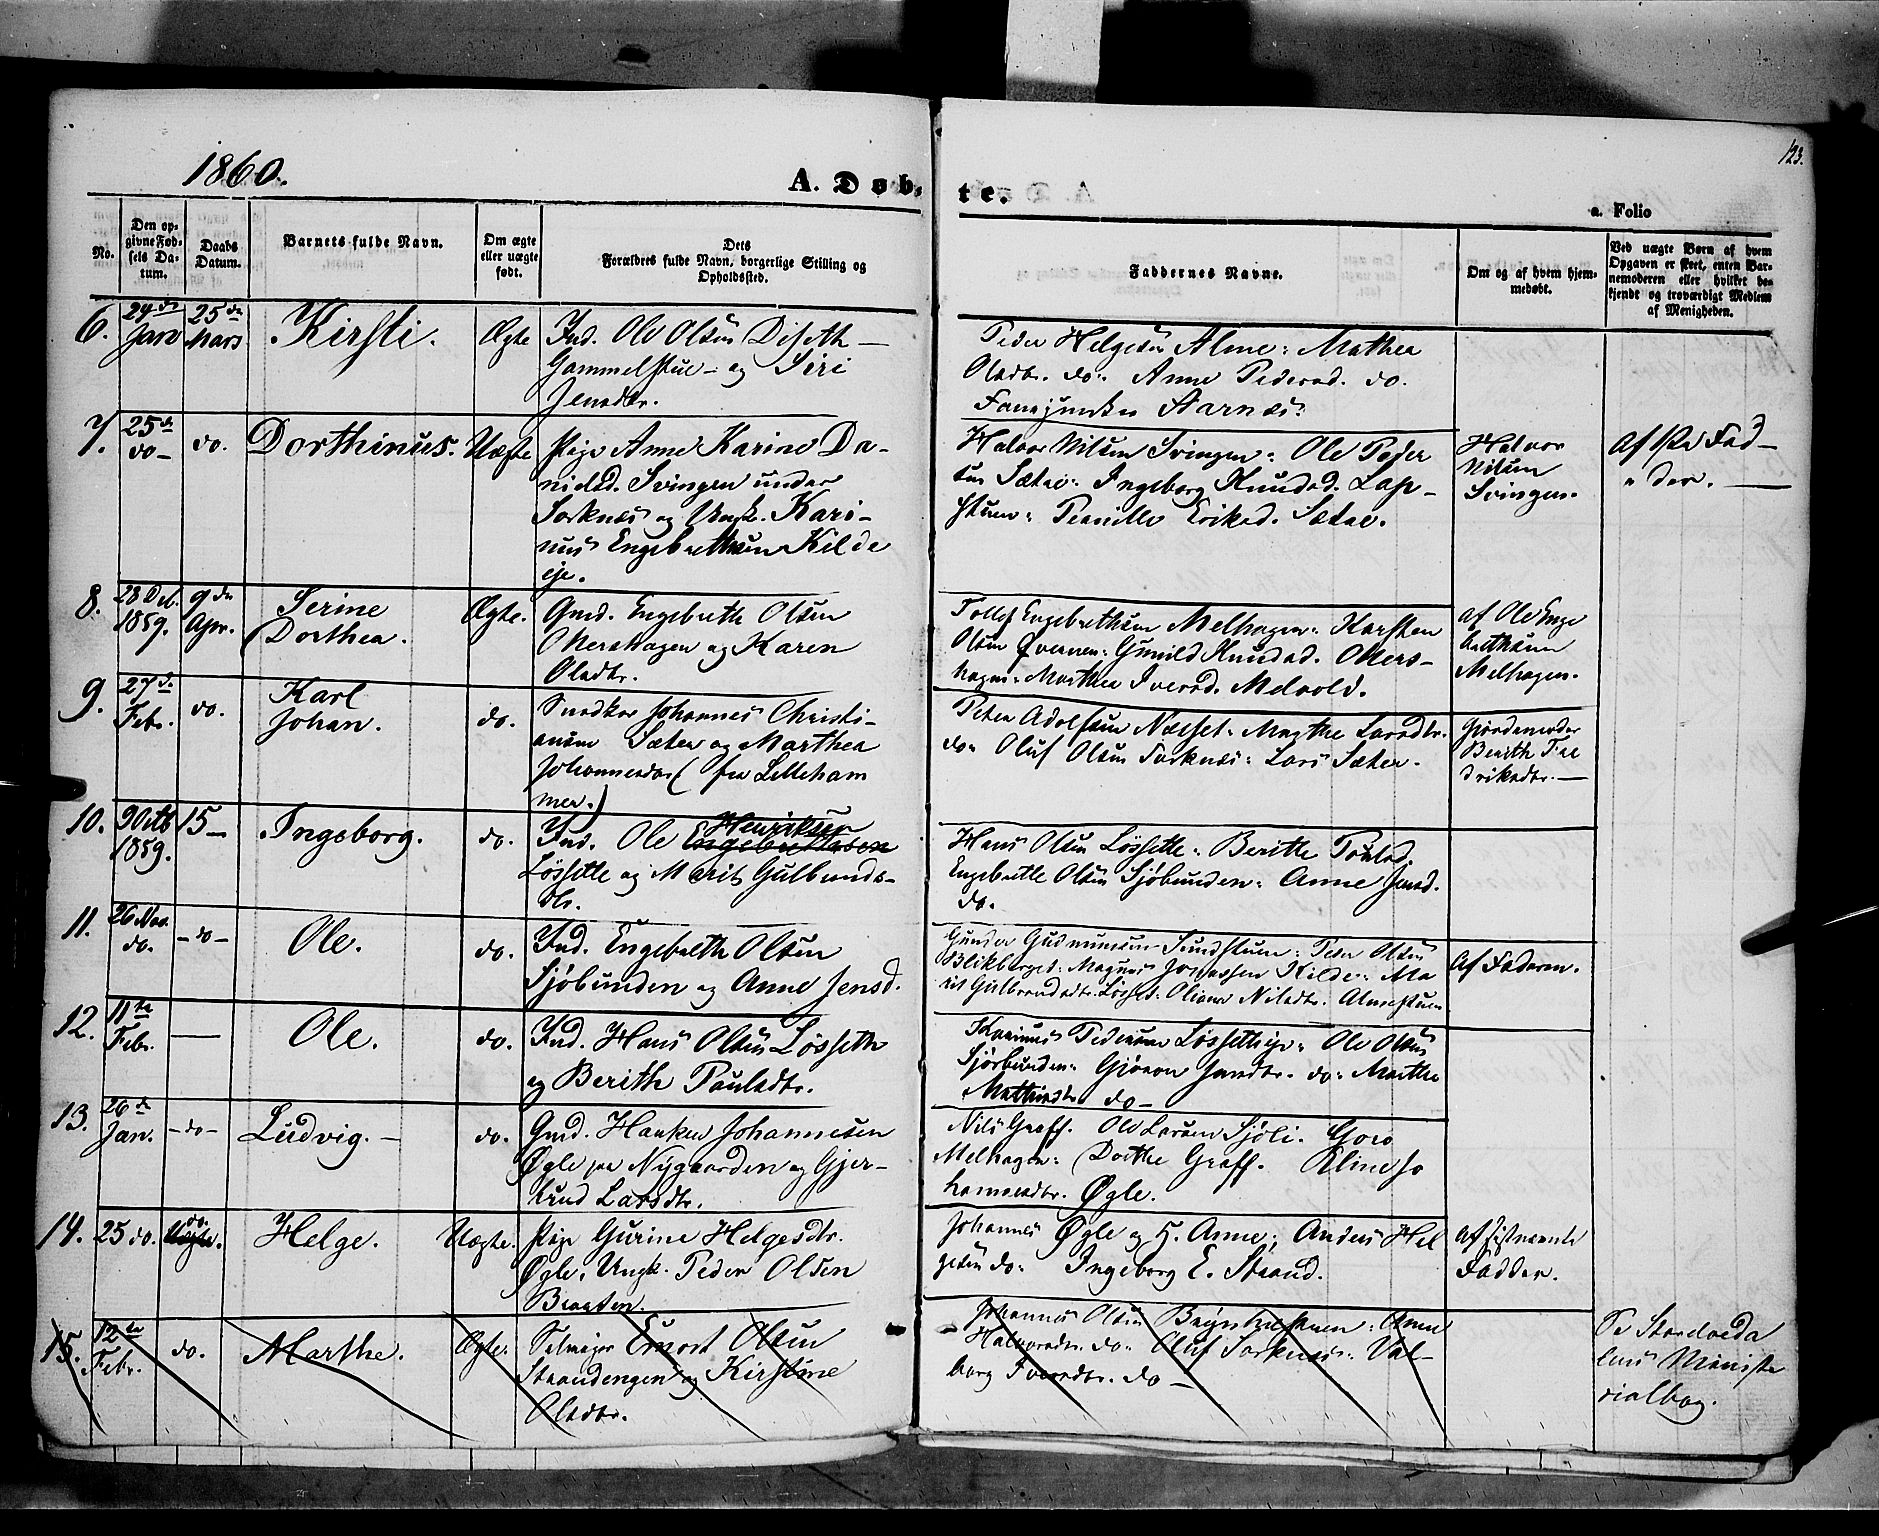 1860.
A. Døb-
te.
123.
a. Folio
No.
Den op-
givne Fød-
sels Da-
tum.
Daabs
Datum.
Barnets fulde Navn.
Om ægte
eller uægte
født.
Dets
Forældres fulde Navn, borgerlige Stilling og
Opholdssted.
Faddernes Navne.
Om og af hvem hjem-
medøbt.
Ved uægte Børn af hvem
Opgaven er skeet, enten Bar-
nemoderen eller hvilket be-
kjendt og troværdigt Medlem
af Menigheden.
6.
24de
Jan
25de
Mars
Kirsti.
Ægte
Ind. Ole Olsen Diseth
Gammelstue og Siri
Jensdtr.
Peder Helgesen Alme: Mathea
Olsdtr. do: Anne Pedersd. do.
Fanejunker Aarnæs.
7.
25de
do
do.
Dorthinus.
Uægte
Pige Anne Karine Da-
nielsd. Svingen under
Sorknæs og Ungk. Kari-
nus Engebrethsen Kilde
eje.
Halvor Nilsen Svingen: Ole Peder
sen Sætre: Ingeborg Knudsd. Lap-
stuen: Pernille Eriksd. Sætre.
Halvor
Nilsen
Svingen.
Af 1ste Fad-
der.
8.
28 Dec.
1859.
9de
Apr.
Serine
Dorthea.
Ægte.
Gmd. Engebreth Olsen
Mershagen og Karen
Olsdtr.
Tollef Engebrethsen Melhagen: Karsten
Olsen Qvernen: Gunild Knudsd. Mers-
hagen: Marthe Iversd. Melvold.
af Ole Enge
brethsen
Melhagen.
9.
27de
Febr.
do.
Karl
Johan.
do.
Snedker Johannes Christi-
ansen Sæter og Marthea
Johannesdtr (fra Lilleham
mer.)
Peter Adolfsen Næsset: Marthe Larsdtr.
do: Oluf Olsen Sorknæs: Lars Sæter.
Gjordemoder
Berith Fre
driksdtr.
10.
9 Octb
1859.
15
Ingeborg.
do.
Henriksen
Ind. Ole Engebrethsen
Løssette og Marit Gulbrands-
dtr.
Hans Olsen Løssette: Berithe Poulsd.
Engebrethe Olsen Sjøbunden: Anne Jensd.
do.
11.
26 Nov.
do.
do
Ole.
do.
Ind. Engebreth Olsen
Sjøbunden og Anne Jensd.
Gunder Gudmunsen Sundstuen: Peder Olsen
Blikberget: Magnus Jonassen Kilde: Ma
rit Gulbrandsdtr. Løsset: Oliane Nilsdtr: Almestuen
Af Faderen.
12.
11te
Febr.
Ole.
do.
Ind. Hans Olsen Løsseth
og Berith Poulsdtr.
Karinus Pedersen Løssetteje: Ole Olsen
Sjøbunden: Gjøron Jensdtr. do: Marthe
Mathisdtr do
13.
26de
Jan.
do
Ludvig.
do.
Gmd. Haaken Johannesen
Øgle paa Nygaarden og Gjer-
trud Larsdtr.
Nils Graff. Ole Larsen Sjøli. Goro
Melhagen: Dorthe Graff. Eline Jo
hannesdtr. Øgle.
14.
25 do.
do.
Uægte.
Helge.
Uægte.
Pige Gurine Helgesdtr.
Øgle, Ungk. Peder Olsen
Bragten.
Johannes Øgle og H. Anne; Anders Hel
gesen do: Ingeborg E. Strand.
af sistnævnte
Fadder.
15.
12te
Febr.
do.
Marthe.
Ægte.
Selvejer Ernst Olsen
Strandengen og Kirstine
Olsdtr.
Johannes Olsen
Halvorsdtr. do: Oluf Sorknæs: Val-
borg Iversdtr. do
Ministe
rialbog.